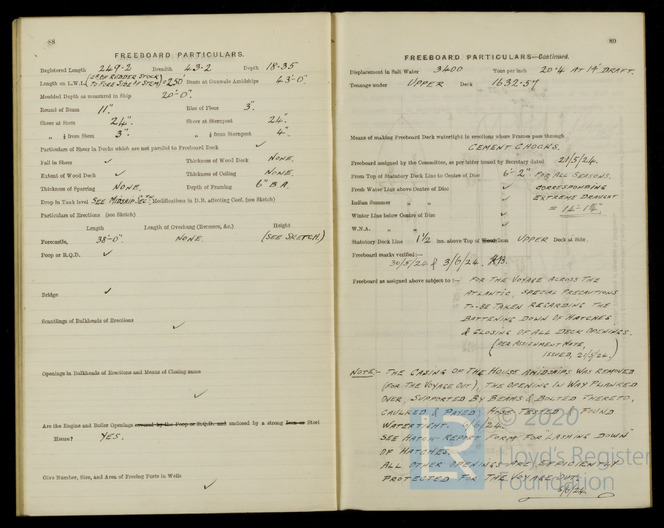 88
FREEBOARD PARTICULARS.
Registered Length 249·2 Breadth 43·2 Depth 18·35
Length on L.W.L. (AFT RUDDER STOCK TO FORE SIDE OF STEM) = 250' Beam at Gunwale Amidships 43'-0"
Moulded Depth as measured in Ship 20'-0"
Round of Beam 11" Rise of Floor 3".
Sheer at Stem 24" Sheer at Sternpost 24"
" ⅛ from Stem 3" " ⅛ from Sternpost 4"
Particulars of Sheer in Decks which are not parallel to Freeboard Deck ✓
Fall in Sheer ✓ Thickness of Wood Deck NONE.
Extent of Wood Deck ✓ Thickness of Ceiling NONE.
Thickness of Sparring NONE. Depth of Framing 6" B.A.
Drop in Tank level SEE MIDSHIP SECTN. Modifications in D.B. affecting Coef. (see Sketch)
Particulars of Erections (see Sketch)
Length Length of Overhang (Recesses, &c.) Height
Forecastle, 38'-0" NONE. (SEE SKETCH.)
Poop or R.Q.D. ✓
Bridge ✓
Scantlings of Bulkheads of Erections
✓
Openings in Bulkheads of Erections and Means of Closing same
✓
Are the Engine and Boiler Openings covered by the Poop or R.Q.D. and enclosed by a strong Iron or Steel
House? YES.
Give Number, Size, and Area of Freeing Ports in Wells
✓
89
FREEBOARD PARTICULARS—Continued.
Displacement in Salt Water 3400 Tons per inch 20·4 AT 14' DRAFT.
Tonnage under UPPER Deck 1632·57
Means of making Freeboard Deck watertight in erections where Frames pass through
CEMENT CHOCKS.
Freeboard assigned by the Committee, as per letter issued by Secretary dated 21/5/24.
From Top of Statutory Deck Line to Centre of Disc 6'-2" FOR ALL SEASONS.
Fresh Water Line above Centre of Disc ✓ CORRESPONDING
Indian Summer " " ✓ EXTREME DRAUGHT
Winter Line below Centre of Disc ✓ =
W.N.A. " " ✓
Statutory Deck Line 1½ ins. above Top of Wood Iron UPPER Deck at Side.
Freeboard marks verified:—
30/5/24 & 3/6/24.
Freeboard as assigned above subject to :— FOR THE VOYAGE ACROSS THE
ATLANTIC, SPECIAL PRECAUTIONS
TO BE TAKEN REGARDING THE
BATTENING DOWN OF HATCHES
& CLOSING OF ALL DECK OPENINGS.
(PER ASSIGNMENT NOTE,
ISSUED, 21/5/24.)
NOTE:- THE CASING OF THE HOUSE AMIDSHIPS WAS REMOVED
(FOR THE VOYAGE OUT), THE OPENING IN WAY PLANKED
OVER, SUPPORTED BY BEAMS & BOLTED THERETO,
CAULKED & PAYED, HOSE TESTED & FOUND
WATERTIGHT. /6/24.
SEE HATCH REPORT FORM FOR "LASHING DOWN"
OF HATCHES.
ALL OTHER OPENINGS ARE EFFICIENTLY
PROTECTED FOR THE VOYAGE OUT.
5/6/24.
LR © 2020
Lloyd's Register
Foundation